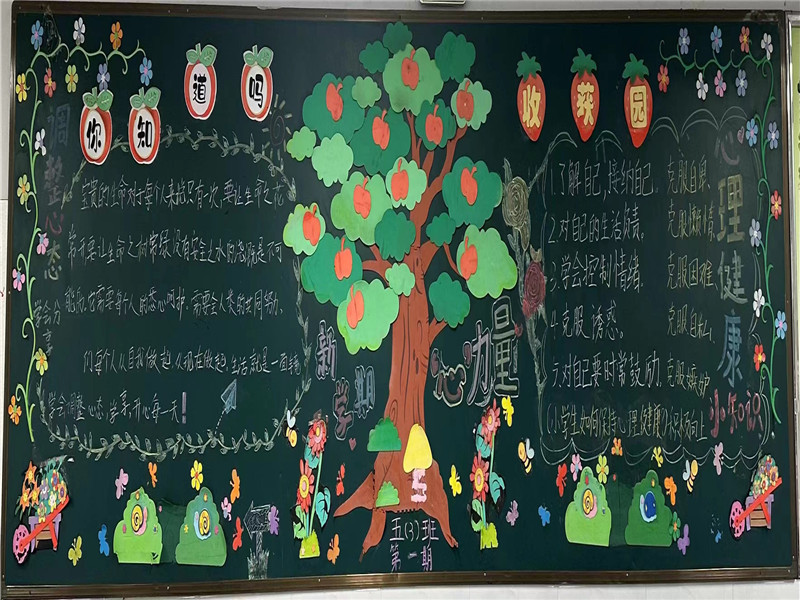 你知道吗
调整心态
学会分享
宝贵的生命对于每个人来说只有一次,要让生命之花
常开要让生命之树常绿,没有安全之水的浇灌是不可
能的,它需要每个人的悉心呵护,需要全人类的共同努力。
从现在做起,生活就是一面镜
学会调整心态,开心每一天!
新学期
心力量
五(3)班
第一期
收获园
1.了解自己,接纳自己。 克服自卑
2.对自己的生活负责。 克服懒惰
3.学会控制情绪。 克服困难
4.克服诱惑。 克服自私
5.对自己要时常鼓励。 克服嫉妒
(小学生如何保持心理健康)
心理健康
小知识